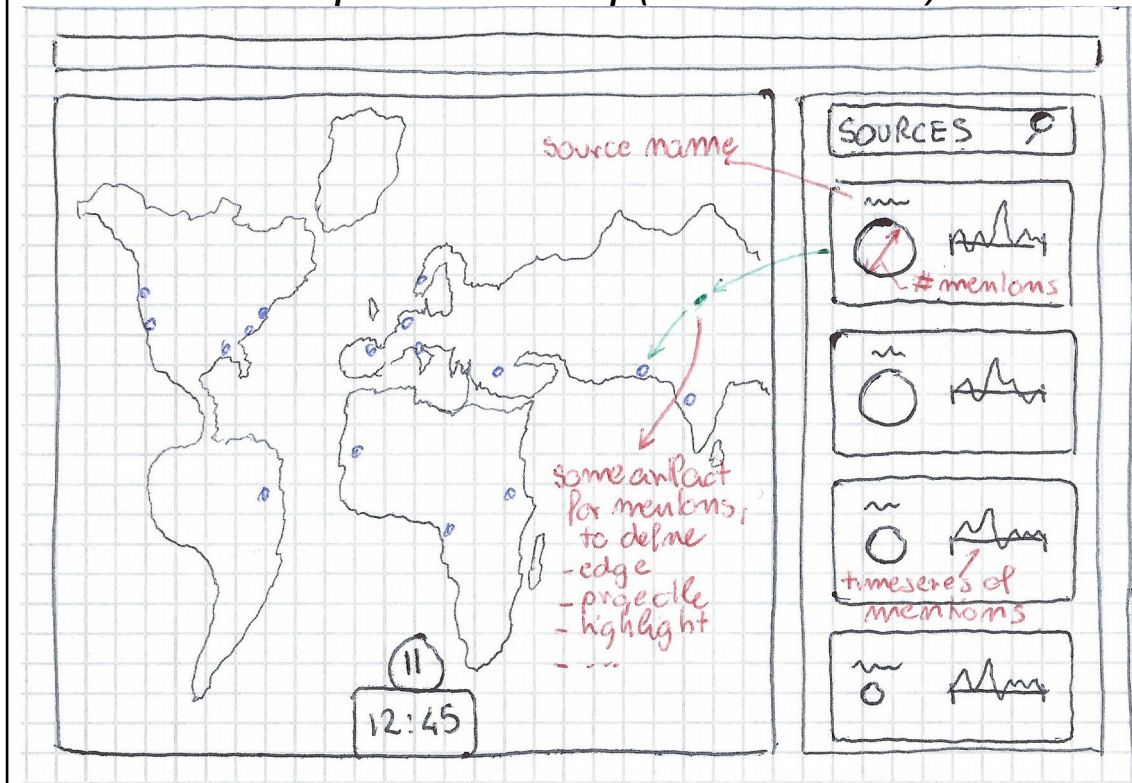 source name
SOURCES
# mentions
some artifact
for mentions,
to define
- edge
- projectile
- highlight
- ...
timeseries of
mentions
12:45